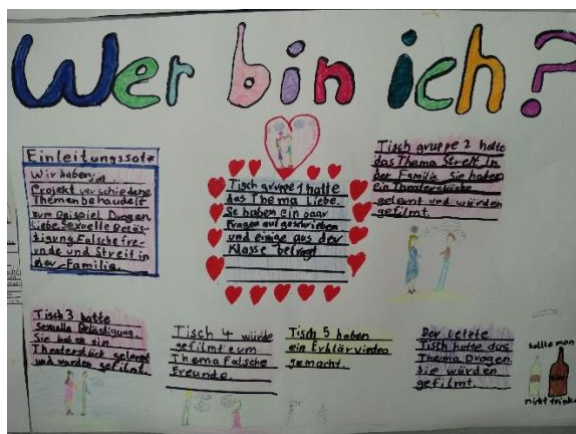 Wer bin ich?
Einleitungssatz
Wir haben
Projekt verschiedene
Themen behandelt
zum Beispiel Drogen,
Liebe, Sexuelle Beläs-
tigung, Falsche fre-
unde und Streit in
der Familie.
Tisch gruppe 1 hatte
das Thema Liebe.
Sie haben ein paar
Fragen auf geschrieben
und einige aus der
Klasse befragt
Tisch gruppe 2 hatte
das Thema Streit in
der Familie Sie haben
ein Theaterstück
gelernt und würden
gefilmt.
Tisch 3 hatte
Sexuelle Belästigung.
Sie haben ein
Theaterstück gelernt
und wurden gefilmt.
Tisch 4 würde
gefilmt zum
Thema Falsche
Freunde.
Tisch 5 haben
ein Erklär video
gemacht.
Der letzte
Tisch hatte das
Thema Drogen
Sie würden
gefilmt.
sollte man
nicht trinken